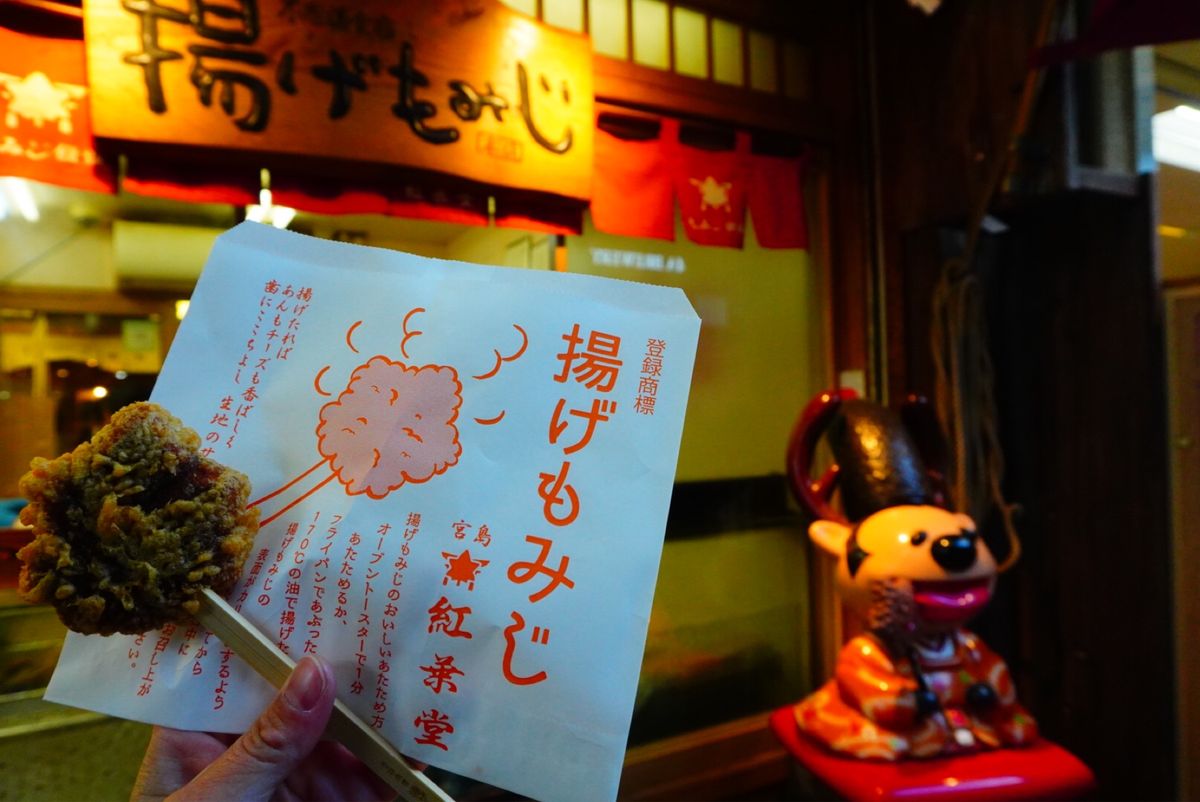 揚げもみじ
登録商標
揚げもみじ
宮島
紅葉堂
揚げたれば
あんもチーズも香ばしく
歯にここちよし 生地のサ
揚げもみじのおいしいあたため方
オーブントースターで1分
あたためるか、
フライパンであぶった
170℃の油で揚げた
揚げもみじの
表面がカリ
するよう
てから
中に
お召し上が
さい。